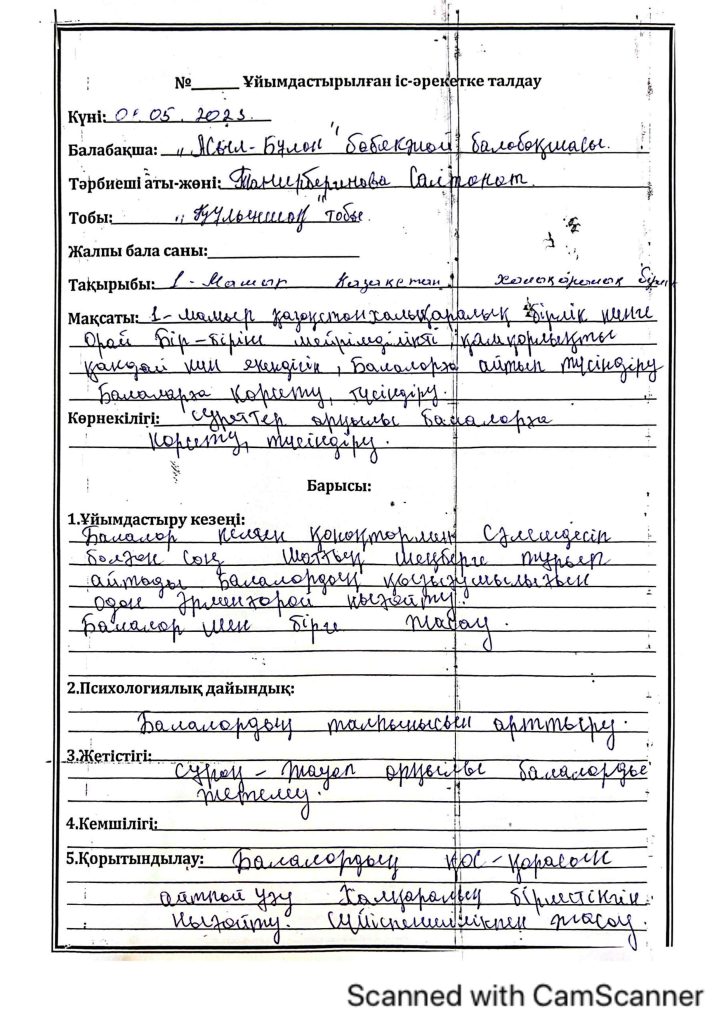 №_____ Ұйымдастырылған іс-әрекетке талдау
Күні: 01.05.2023.
Балабақша: "Жыл-Бұлон" бөбекжай балобақшасы.
Тәрбиеші аты-жөні: Танирбергинова Салтонат.
Тобы: "Құлыншақ" тобы.
Жалпы бала саны:
Тақырыбы: 1-Мамыр Казақстан халықаралық бірлік
Мақсаты: 1-мамыр қазақстон халықаралық бірлік кинге
орай Бір-біріне мейрімділікті, қамқорлықты
қандай кин екендісін, Балаларға айтып түсіндіру
Балаларға көрсету, түсіндіру.
Көрнекілігі: суреттер арқылы балаларға
көрсету, түсіндіру.
Барысы:
1.Ұйымдастыру кезеңі:
Балалар келген қонақтормен сәлемдесіп
болған соң шаттық шеңберге тұрып
айтады Балалордың қызығушылығын
одан әрменқорай нығайту.
Балалор мен бірге жасау.
2.Психологиялық дайындық:
Балалордың талпынысын арттыру.
3.Жетістігі:
сұроқ-жауап арқылы балалорды
жетелеу.
4.Кемшілігі:
5.Қорытындылау: Балалордың көз-қарасын
айтқызу Халқаралық бірлестіктін
нығойту. Сүйіспеншілікпен жасау.
Scanned with CamScanner